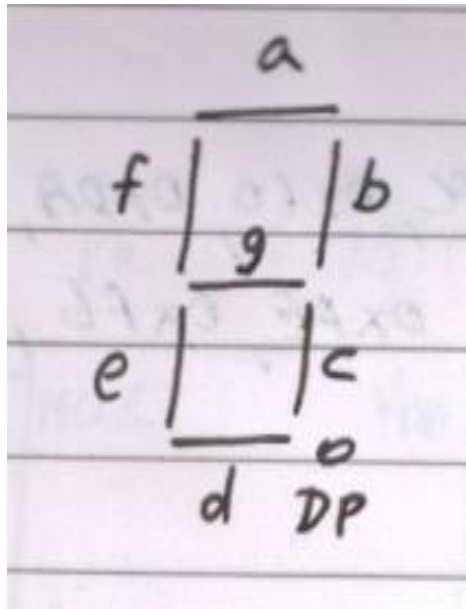 a
f b
g
e c
d DP